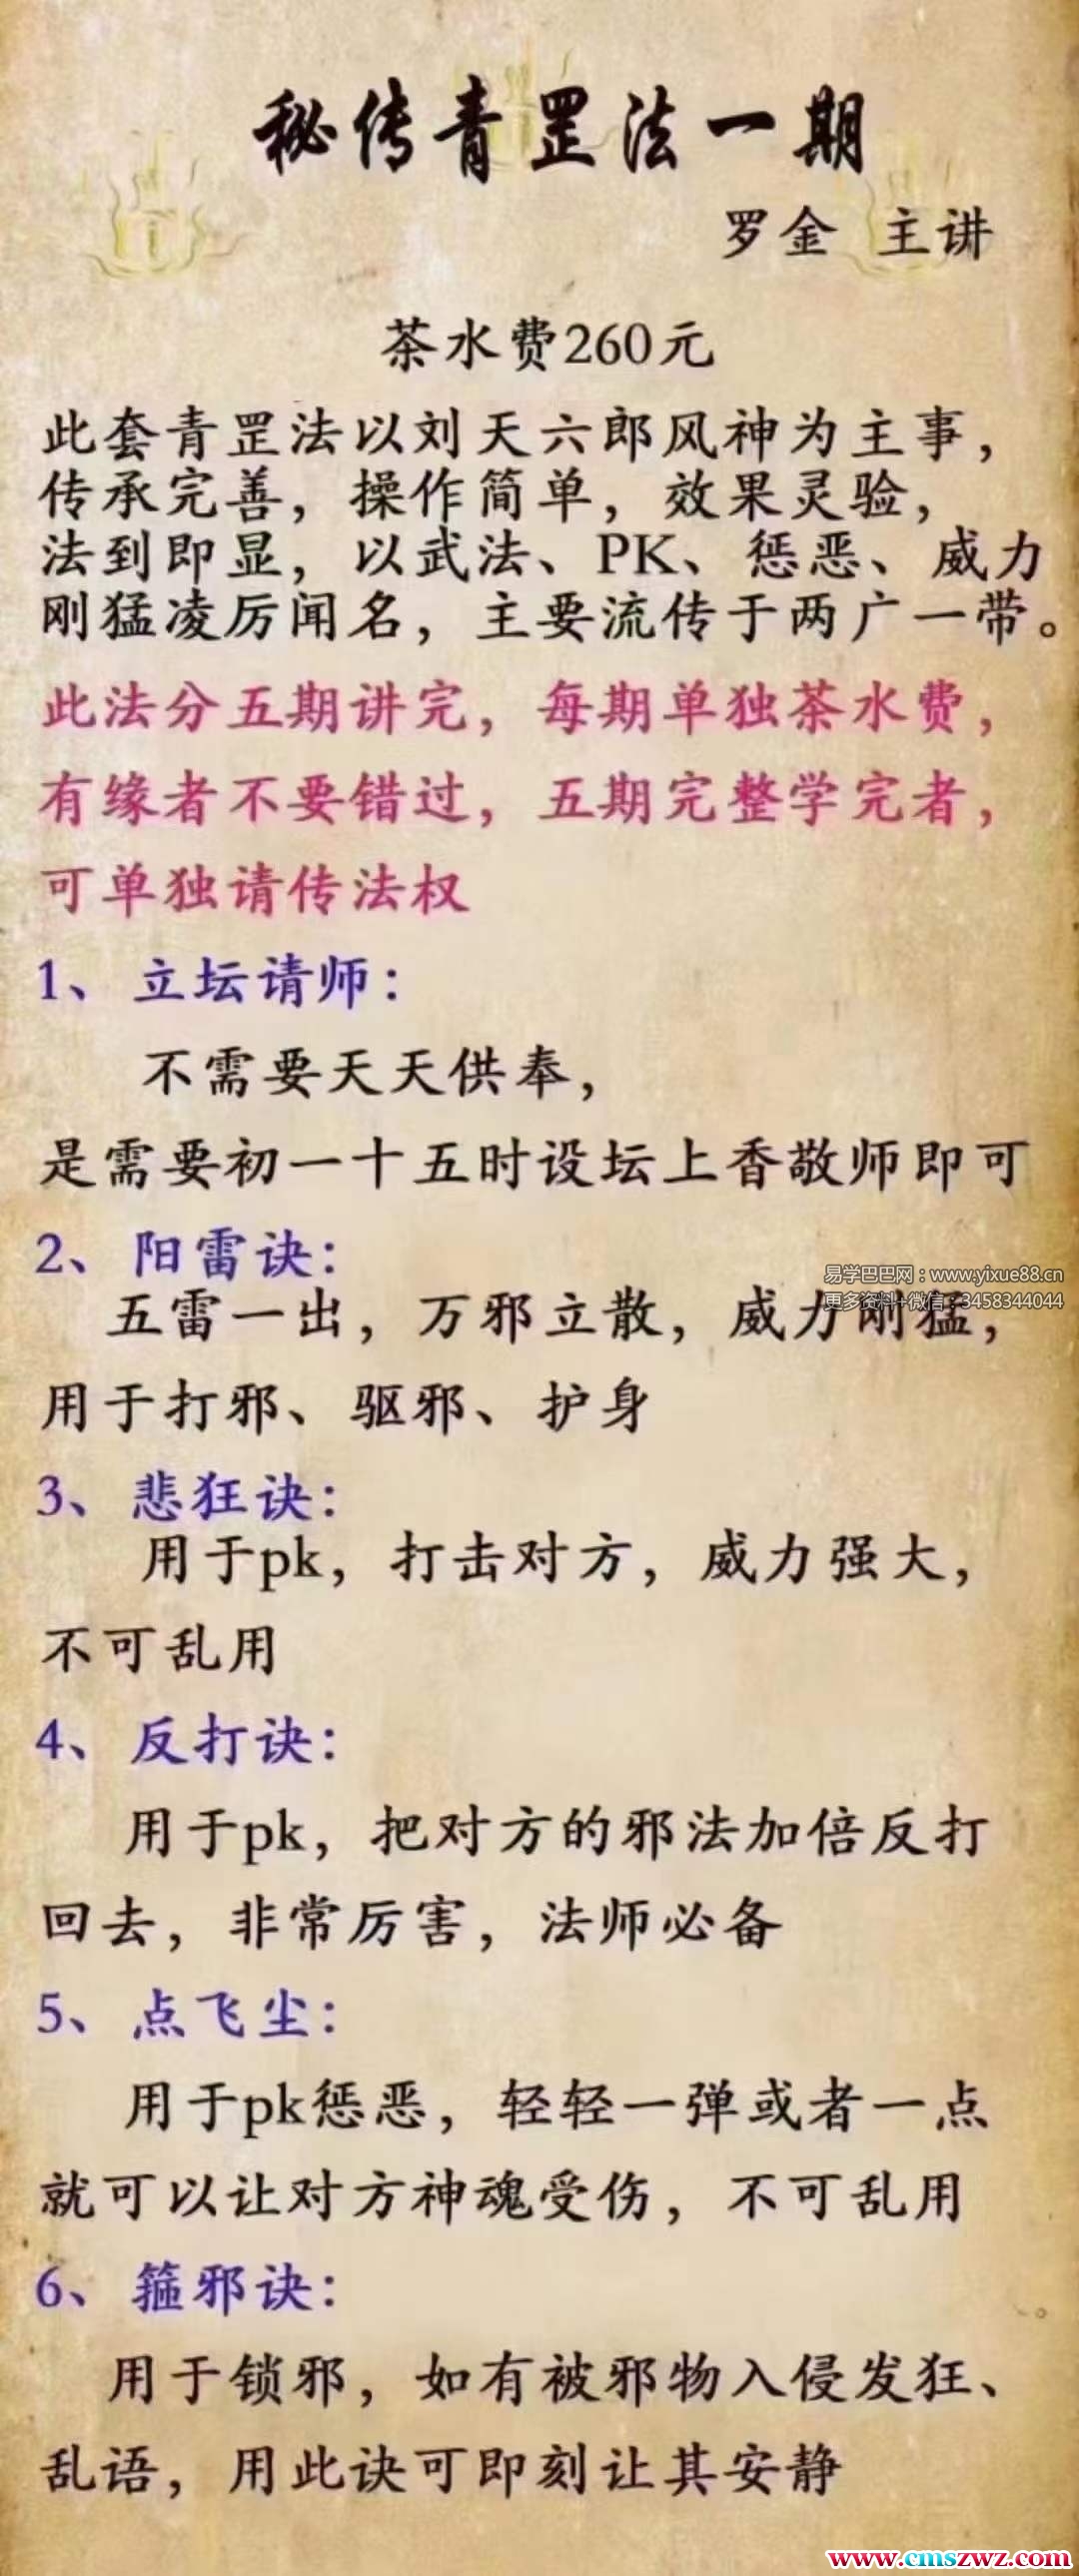 秘传青罡法一期
罗金 主讲
茶水费260元
此套青罡法以刘天六郎风神为主事，
传承完善，操作简单，效果灵验，
法到即显，以武法、PK、惩恶、威力
刚猛凌厉闻名，主要流传于两广一带。
此法分五期讲完，每期单独茶水费，
有缘者不要错过，五期完整学完者，
可单独请传法权
1、立坛请师：
不需要天天供奉，
是需要初一十五时设坛上香敬师即可
2、阳雷诀：
易学巴巴网：www.yixue88.cn
更多资料+微信：3458344044
五雷一出，万邪立散，威力刚猛，
用于打邪、驱邪、护身
3、悲狂诀：
用于pk，打击对方，威力强大，
不可乱用
4、反打诀：
用于pk，把对方的邪法加倍反打
回去，非常厉害，法师必备
5、点飞尘：
用于pk惩恶，轻轻一弹或者一点
就可以让对方神魂受伤，不可乱用
6、箍邪诀：
用于锁邪，如有被邪物入侵发狂、
乱语，用此诀可即刻让其安静
www.cmszwz.com